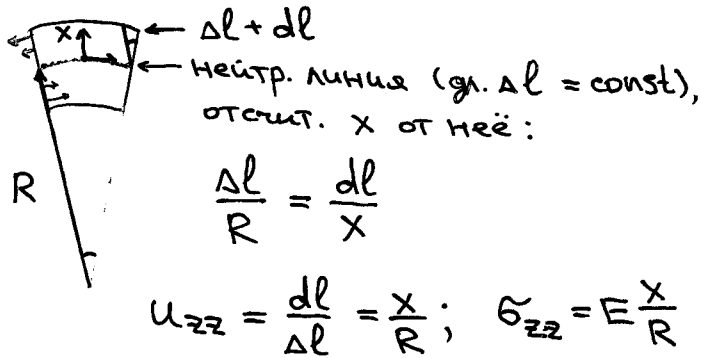 x Δl + dl
нейтр. линия (дл. Δl = const),
отсчит. x от неё:
R Δl/R = dl/x
u_zz = dl/Δl = x/R; σ_zz = E x/R